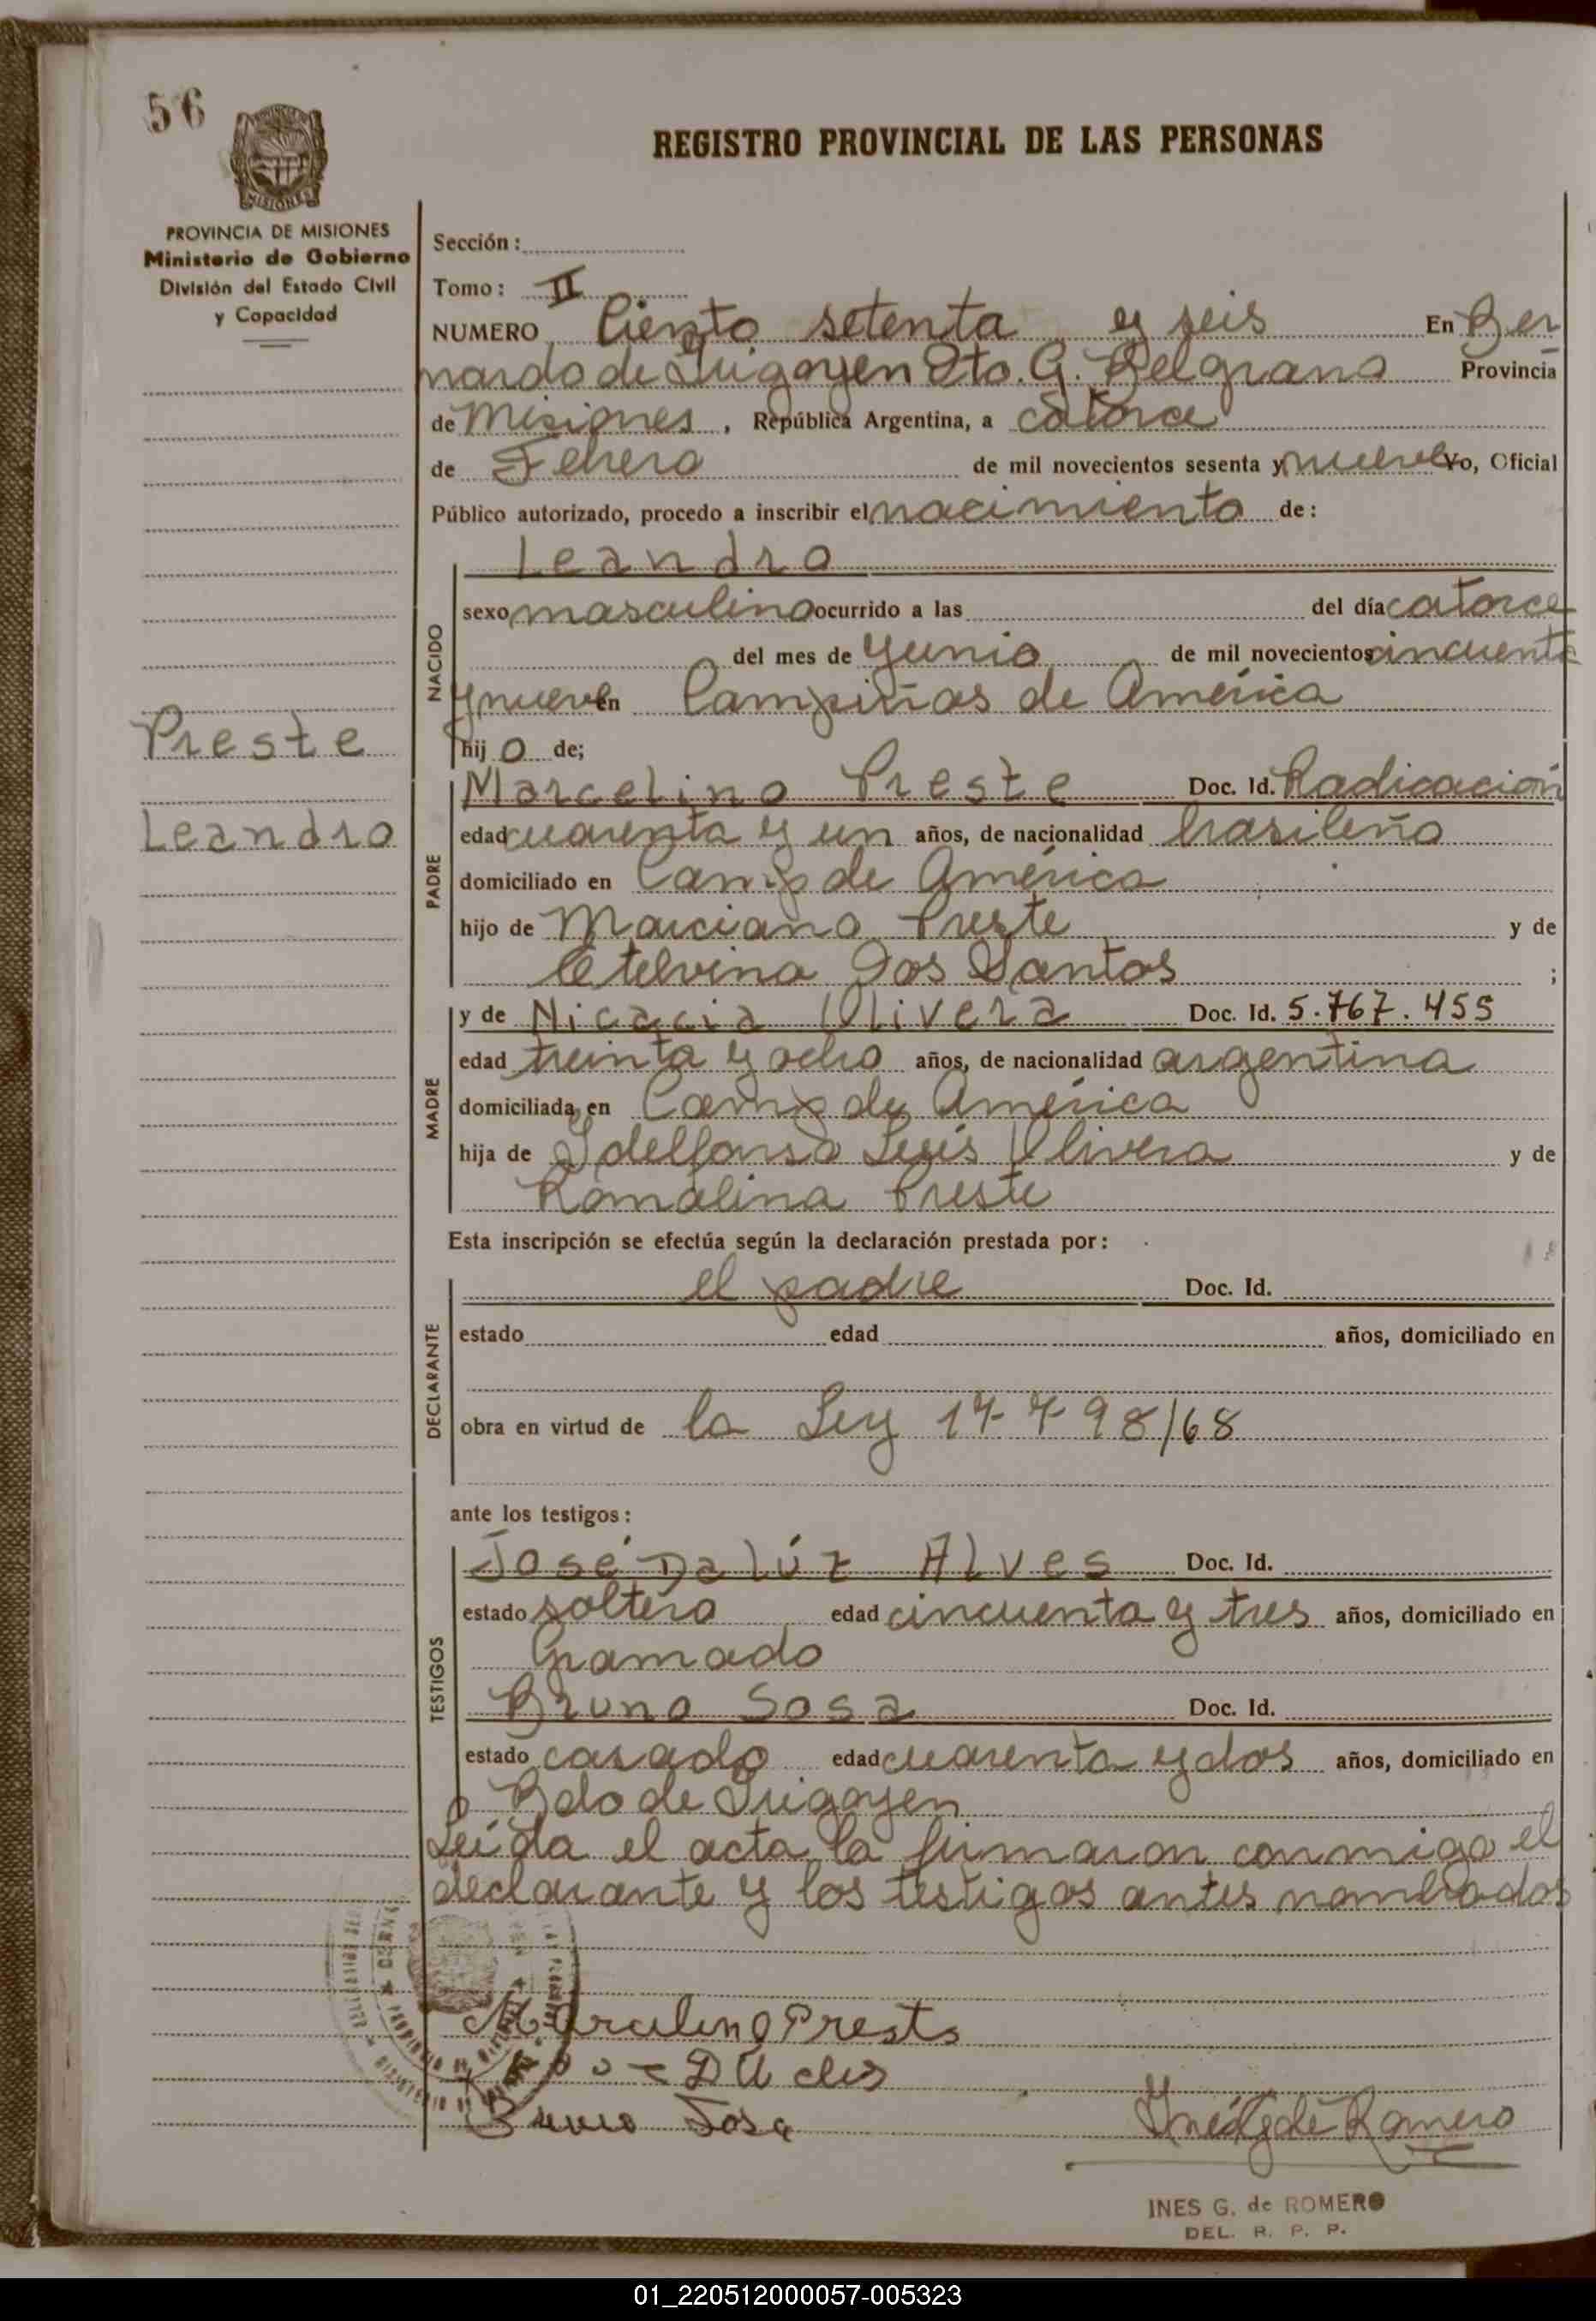 56
REGISTRO PROVINCIAL DE LAS PERSONAS
PROVINCIA DE MISIONES
Ministerio de Gobierno
División del Estado Civil
y Capacidad
Sección:
Tomo: II
NUMERO Ciento setenta y seis En Ber
nardo de Irigoyen Dto. G. Belgrano Provincia
de Misiones, República Argentina, a catorce
de Febrero de mil novecientos sesenta y nueve Yo, Oficial
Público autorizado, procedo a inscribir el nacimiento de:
Leandro
NACIDO
sexo masculino ocurrido a las del día catorce
del mes de Yunio de mil novecientos cincuenta
y nueve en Campiñas de América
hijo de;
Preste
Leandro
PADRE
Marcelino Preste Doc. Id. Radicación
edad cuarenta y un años, de nacionalidad brasileño
domiciliado en Camp de América
hijo de Marciano Preste y de
Etelvina Dos Santos ;
MADRE
y de Nicacia Olivera Doc. Id. 5.767.455
edad treinta y ocho años, de nacionalidad argentina
domiciliada en Camp de América
hija de Idelfonso Luis Olivera y de
Romalina Preste
Esta inscripción se efectúa según la declaración prestada por:
DECLARANTE
el padre Doc. Id.
estado edad años, domiciliado en
obra en virtud de la Ley 17798/68
ante los testigos:
TESTIGOS
José Da lúz Alves Doc. Id.
estado soltero edad cincuenta y tres años, domiciliado en
Gramado
Bruno Sosa Doc. Id.
estado casado edad cuarenta y dos años, domiciliado en
Bdo de Irigoyen
Leída el acta la firmaron conmigo el
declarante y los testigos antes nombrados
Marcelino Prests
Bruno Sosa
Inés G de Romero
INES G. de ROMERO
DEL. R. P. P.
01_220512000057-005323